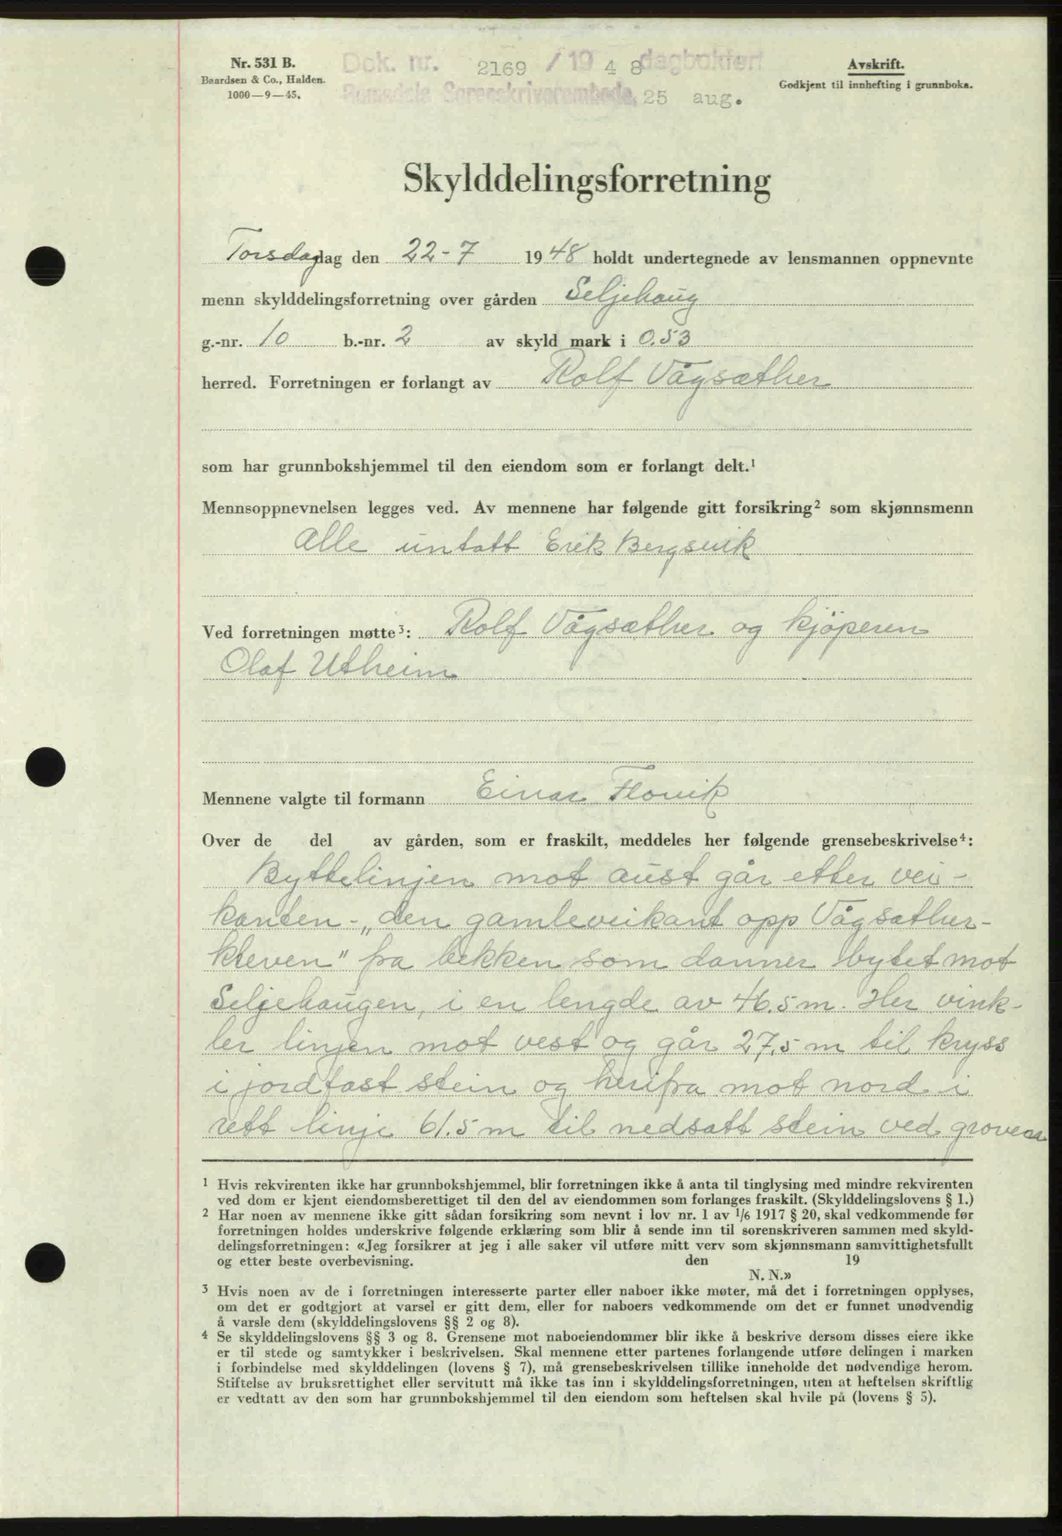 Nr. 531 B.
Baardsen & Co., Halden.
1000—9—45.
Dok. nr. 2169 / 19 48 dagbokført
Romsdals Sorenskriverembede, 25 aug.
Avskrift.
Godkjent til innhefting i grunnboka.
Skylddelingsforretning
Torsdag dag den 22-7 1948 holdt undertegnede av lensmannen oppnevnte
menn skylddelingsforretning over gården Seljehaug
g.-nr. 10 b.-nr. 2 av skyld mark i 0.53
herred. Forretningen er forlangt av Rolf Vågsæther
som har grunnbokshjemmel til den eiendom som er forlangt delt.¹
Mennsoppnevnelsen legges ved. Av mennene har følgende gitt forsikring² som skjønnsmenn
Alle untatt Erik Bergsvik
Ved forretningen møtte³: Rolf Vågsæther og kjöperen
Olaf Utheim
Mennene valgte til formann Einar Flovik
Over de del av gården, som er fraskilt, meddeles her følgende grensebeskrivelse⁴:
Byttelinjen mot aust går etter vei-
kanten - „den gamleveikant opp Vågsæther-
kleven" fra bekken som danner bytet mot
Seljehaugen, i en lengde av 46.5 m. Her vink-
ler linjen mot vest og går 27.5 m til kryss
i jordfast stein og herifra mot nord i
rett linje 61.5 m til nedsatt stein ved
¹ Hvis rekvirenten ikke har grunnbokshjemmel, blir forretningen ikke å anta til tinglysing med mindre rekvirenten
ved dom er kjent eiendomsberettiget til den del av eiendommen som forlanges fraskilt. (Skylddelingslovens § 1.)
² Har noen av mennene ikke gitt sådan forsikring som nevnt i lov nr. 1 av ¹/6 1917 § 20, skal vedkommende før
forretningen holdes underskrive følgende erklæring som blir å sende inn til sorenskriveren sammen med skyld-
delingsforretningen: «Jeg forsikrer at jeg i alle saker vil utføre mitt verv som skjønnsmann samvittighetsfullt
og etter beste overbevisning. den 19
N. N.»
³ Hvis noen av de i forretningen interesserte parter eller naboer ikke møter, må det i forretningen opplyses,
om det er godtgjort at varsel er gitt dem, eller for naboers vedkommende om det er funnet unødvendig
å varsle dem (skylddelingslovens §§ 2 og 8).
⁴ Se skylddelingslovens §§ 3 og 8. Grensene mot naboeiendommer blir ikke å beskrive dersom disses eiere ikke
er til stede og samtykker i beskrivelsen. Skal mennene etter partenes forlangende utføre delingen i marken
i forbindelse med skylddelingen (lovens § 7), må grensebeskrivelsen tillike inneholde det nødvendige herom.
Stiftelse av bruksrettighet eller servitutt må ikke tas inn i skylddelingsforretningen, uten at heftelsen skriftlig
er vedtatt av den som har grunnbokshjemmel til den eiendom som heftelsen skal hvile på (lovens § 5).